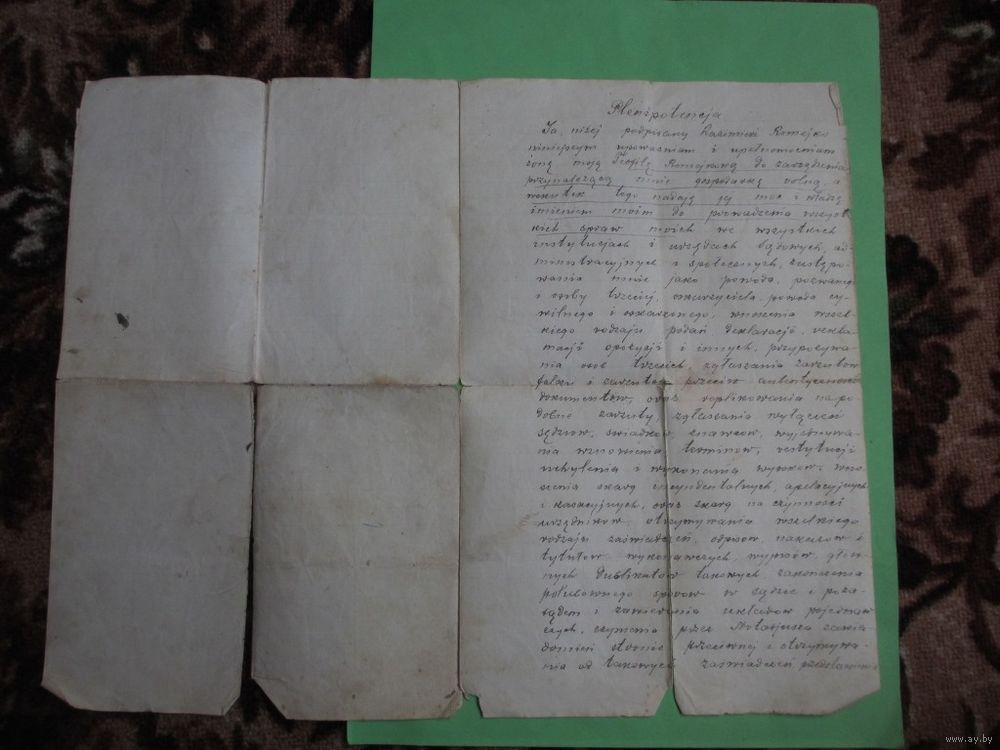 Plenipotencja
Ja, niżej podpisany Kazimierz Romejko
niniejszym upoważniam i upełnomocniam
żonę moją Teofilę Romejkową do zarządzania
przynależącą mnie gospodarką rolną, a
wskutek tego nadaję jej moc i władzę
imieniem moim do prowadzenia wszyst-
kich spraw moich we wszystkich
instytucjach i urzędach sądowych, ad-
ministracyjnych i społecznych, zastępo-
wania mnie jako powoda, pozwanego
i osoby trzeciej, oskarżyciela, powoda cy-
wilnego i oskarżonego, wnoszenia wszel-
kiego rodzaju podań deklaracji, rekla-
macji opozycji i innych, przypozywa-
nia osób trzecich, zgłaszania zarzutów
fałszu i zarzutów przeciw autentyczności
dokumentów, oraz replikowania na po-
dobne zarzuty, zgłaszania wyłączeń
sędziów, świadków, znawców, wyjednywa-
nia wznowienia terminów, restytucji
uchylenia i wykonania wyroków, wno-
szenia skarg incydentalnych, apelacyjnych
i kasacyjnych, oraz skarg na czynności
urzędników, otrzymywania wszelkiego
rodzaju zaświadczeń, odpisów, nakazów i
tytułów wykonawczych, wypisów, głów-
nych dublikatów takowych, zakończenia
polubownego sporów w sądzie i poza
sądem i zawierania układów pojednaw-
czych, czynienia przez Notarjusza zawia-
domień stronie przeciwnej i otrzymywa-
nia od takowych zaświadczeń
www.ay.by